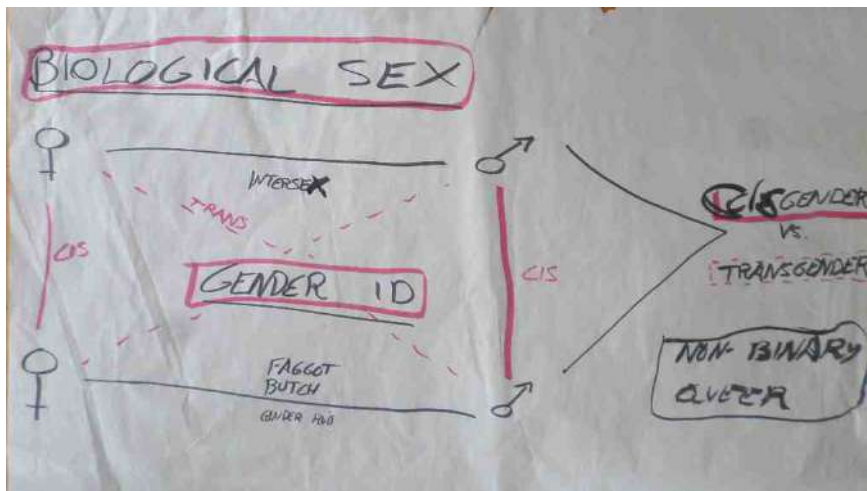 BIOLOGICAL SEX
INTERSEX
TRANS
CIS
CIS
GENDER ID
FAGGOT
BUTCH
GENDER
CISGENDER
VS.
TRANSGENDER
NON-BINARY
QUEER